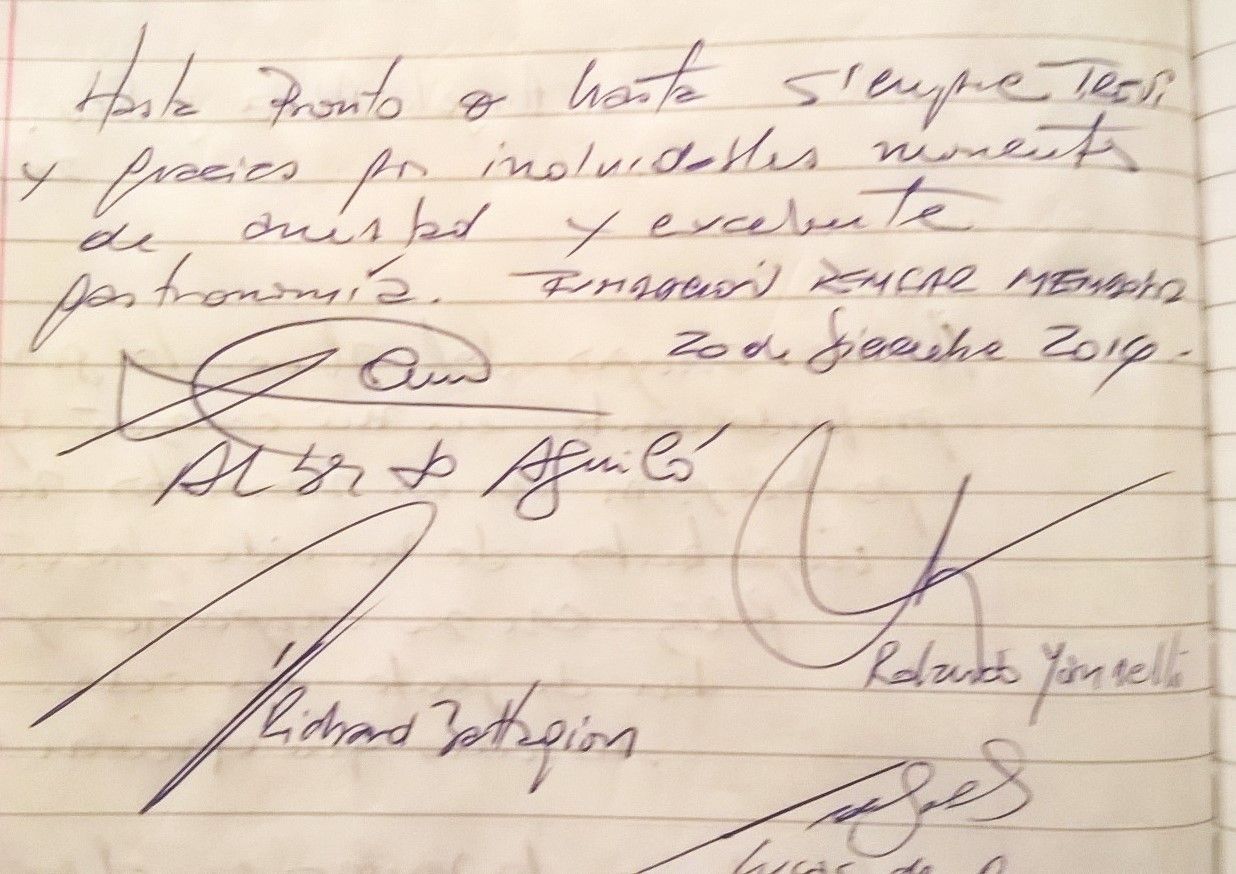 Hasta Pronto o hasta siempre Tessi
y gracias por inolvidables momentos
de amistad y excelente
gastronomía. FUNDACIÓN ZENCAR MENDOZA
20 de Diciembre 2014.
Alberto Aguiló
Rolando Yannelli
Richard Battagion
Lucas de